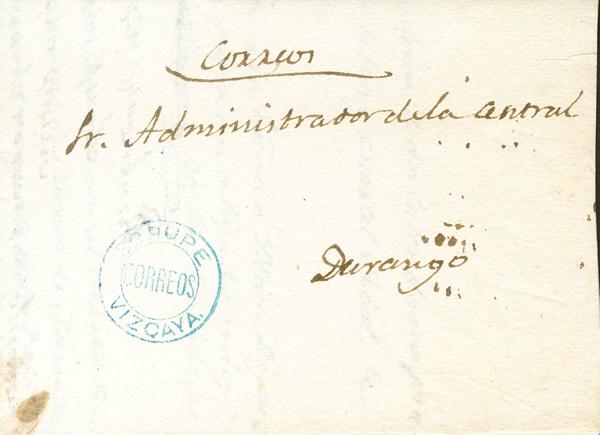 Correos
Sr. Administrador de la Central
Durango
CORREOS
VIZCAYA.